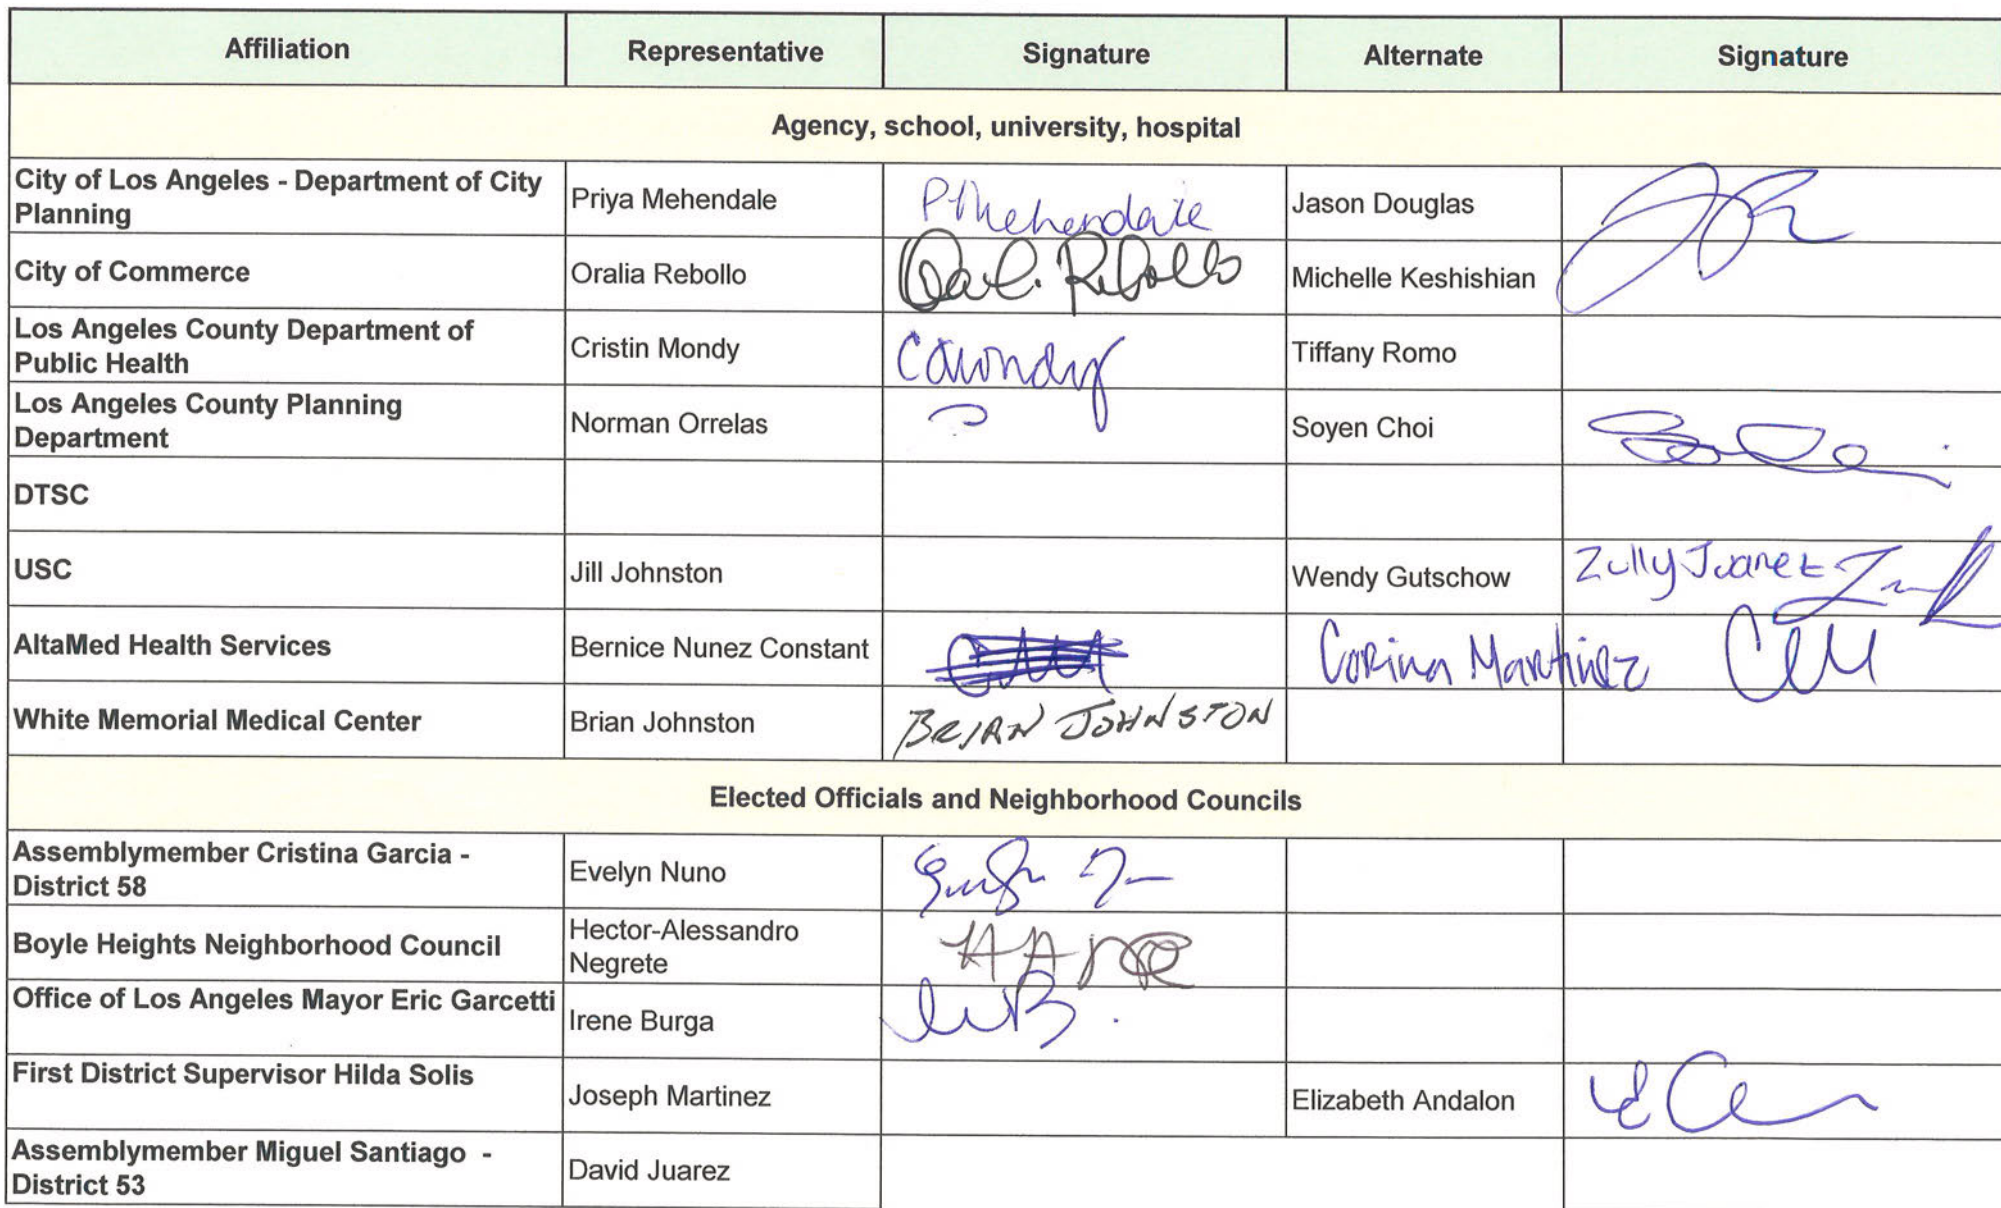 Affiliation Representative Signature Alternate Signature
Agency, school, university, hospital
City of Los Angeles - Department of City
Planning
Priya Mehendale
PMehendale
Jason Douglas
City of Commerce
Oralia Rebollo
Rebollo
Michelle Keshishian
Los Angeles County Department of
Public Health
Cristin Mondy
CMondy
Tiffany Romo
Los Angeles County Planning
Department
Norman Orrelas
Soyen Choi
DTSC
USC
Jill Johnston
Wendy Gutschow
Zully Juarez
AltaMed Health Services
Bernice Nunez Constant
Corina Martinez
CM
White Memorial Medical Center
Brian Johnston
BRIAN JOHNSTON
Elected Officials and Neighborhood Councils
Assemblymember Cristina Garcia -
District 58
Evelyn Nuno
Boyle Heights Neighborhood Council
Hector-Alessandro
Negrete
Office of Los Angeles Mayor Eric Garcetti
Irene Burga
First District Supervisor Hilda Solis
Joseph Martinez
Elizabeth Andalon
Assemblymember Miguel Santiago -
District 53
David Juarez